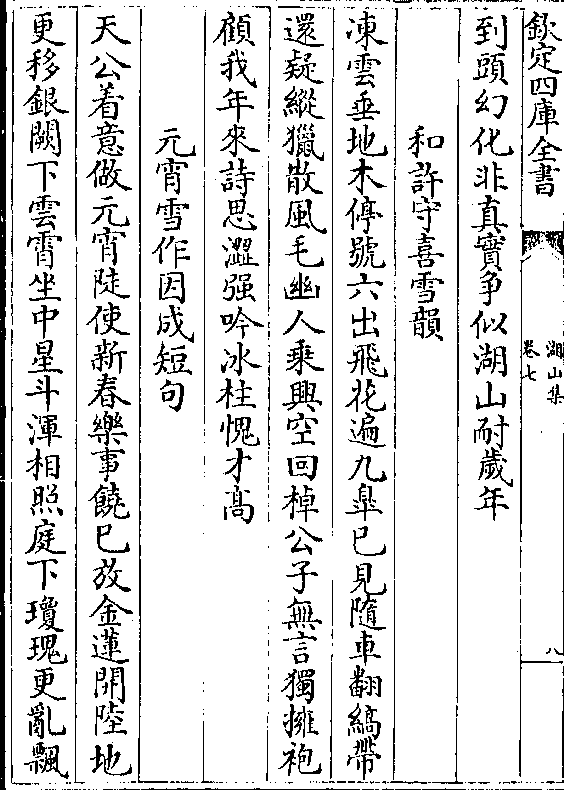 欽定四庫全書
湖山集
卷七
八
到頭幻化非真實爭似湖山耐歲年
和許守喜雪韻
凍雲垂地木停號六出飛花遍九臯已見隨車翻縞帶
還疑縱獵散風毛幽人乘興空回棹公子無言獨擁袍
顧我年來詩思澀强吟冰柱愧才高
元宵雪作因成短句
天公着意做元宵陡使新春樂事饒已放金蓮開陸地
更移銀闕下雲霄坐中星斗渾相照庭下瓊瑰更亂飄